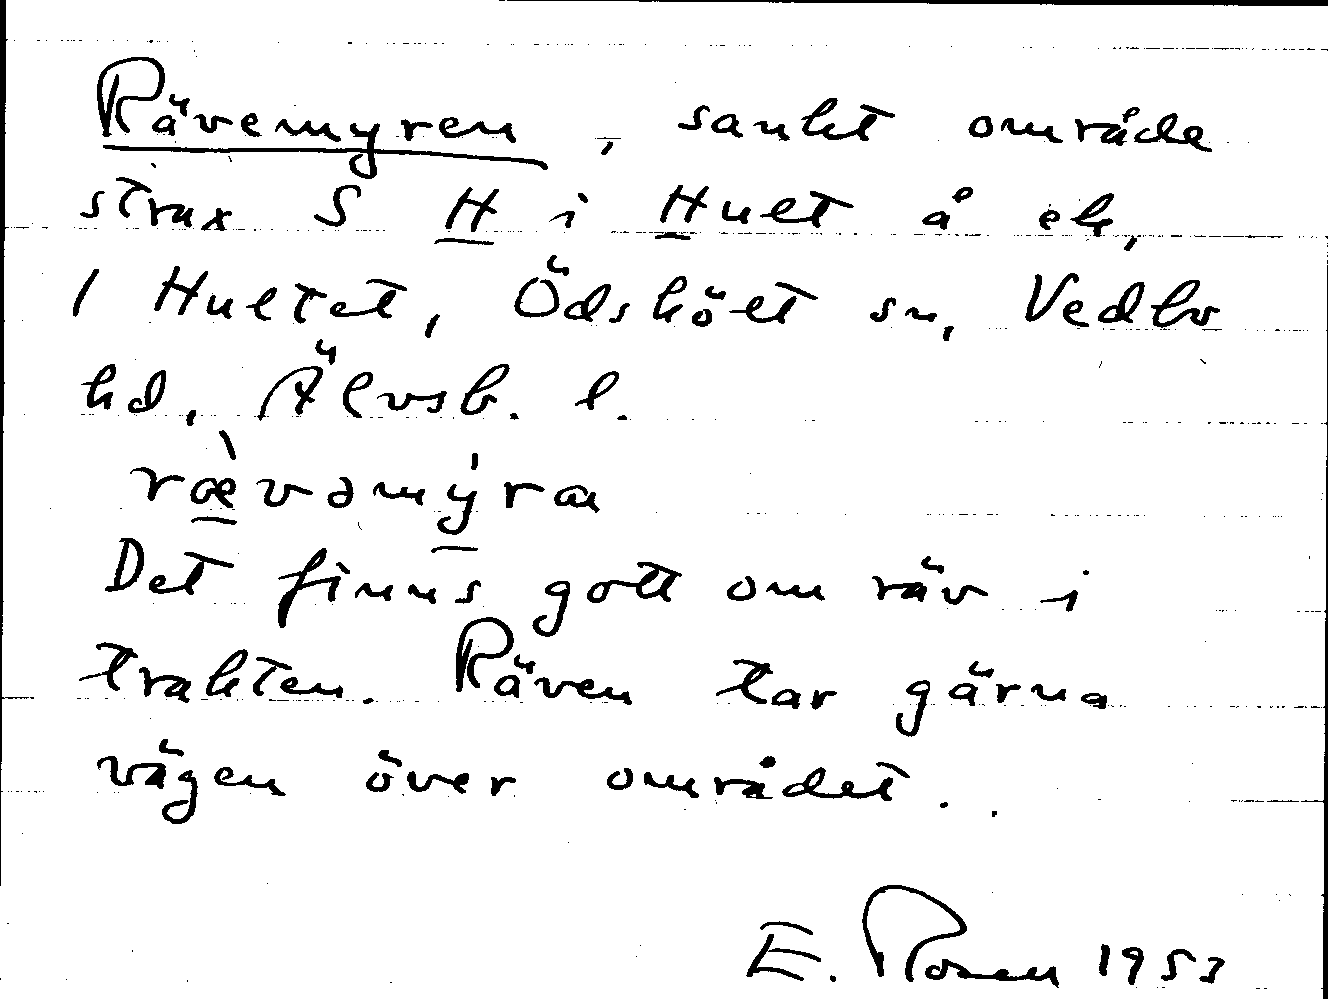 Rävemyren, sankt område
strax S H i Hult å ek,
1 Hultet, Ödskölt sn, Vedbo
hd, Älvsb. l.
rævəmýra
Det finns gott om räv i
trakten. Räven tar gärna
vägen över området.
E. Rosen 1953